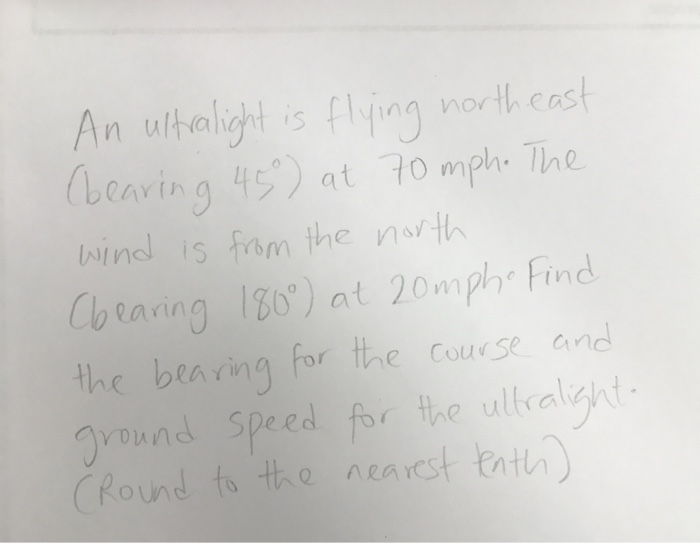 An ultralight is flying northeast
(bearing 45°) at 70 mph. The
wind is from the north
(bearing 180°) at 20mph. Find
the bearing for the course and
ground speed for the ultralight.
(Round to the nearest tenth)